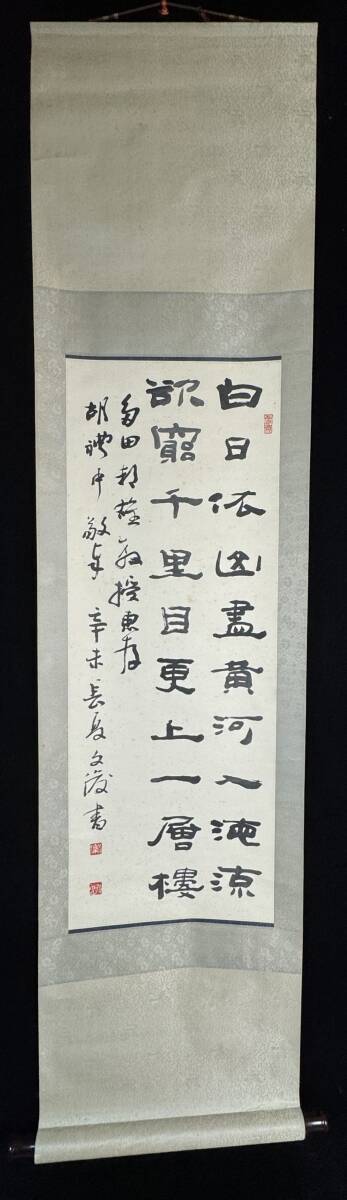 白日依山盡黃河入海流
欲窮千里目更上一層樓
多田邦雄教授惠存
胡禮中敬奉 辛未長夏文波書